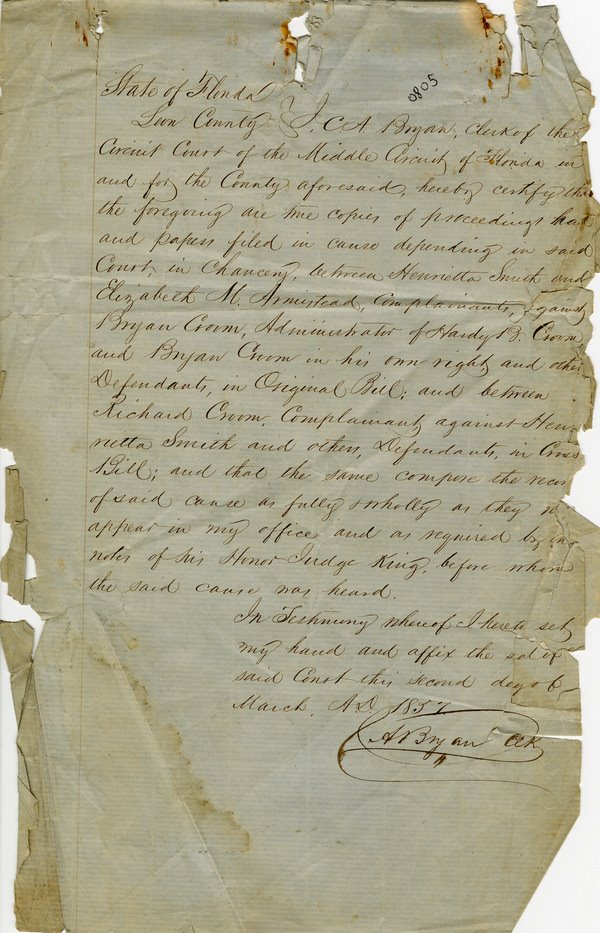 0805
State of Florida
Leon County I, C A Bryan, clerk of the
Circuit Court of the Middle Circuit of Florida in
and for the County aforesaid, hereby certify tha
the foregoing are true copies of proceedings had
and papers filed in cause depending in said
Court, in Chancery, between Henrietta Smith and
Elizabeth M. Armistead, Complainants, against
Bryan Croom, Administrator of Hardy B. Croom
and Bryan Croom in his own right, and other
Defendants, in Original Bill; and between
Richard Croom, Complainant, against Hen-
rietta Smith and others, Defendants, in Cross
Bill; and that the same compose the reco
of said cause as fully & wholly as they
appear in my office and as required by
notes of his Honor Judge King, before whom
the said cause was heard.
In Testimony whereof I hereto set
my hand and affix the seal of
said Court this second day of
March, A.D. 1857
A Bryan Clk